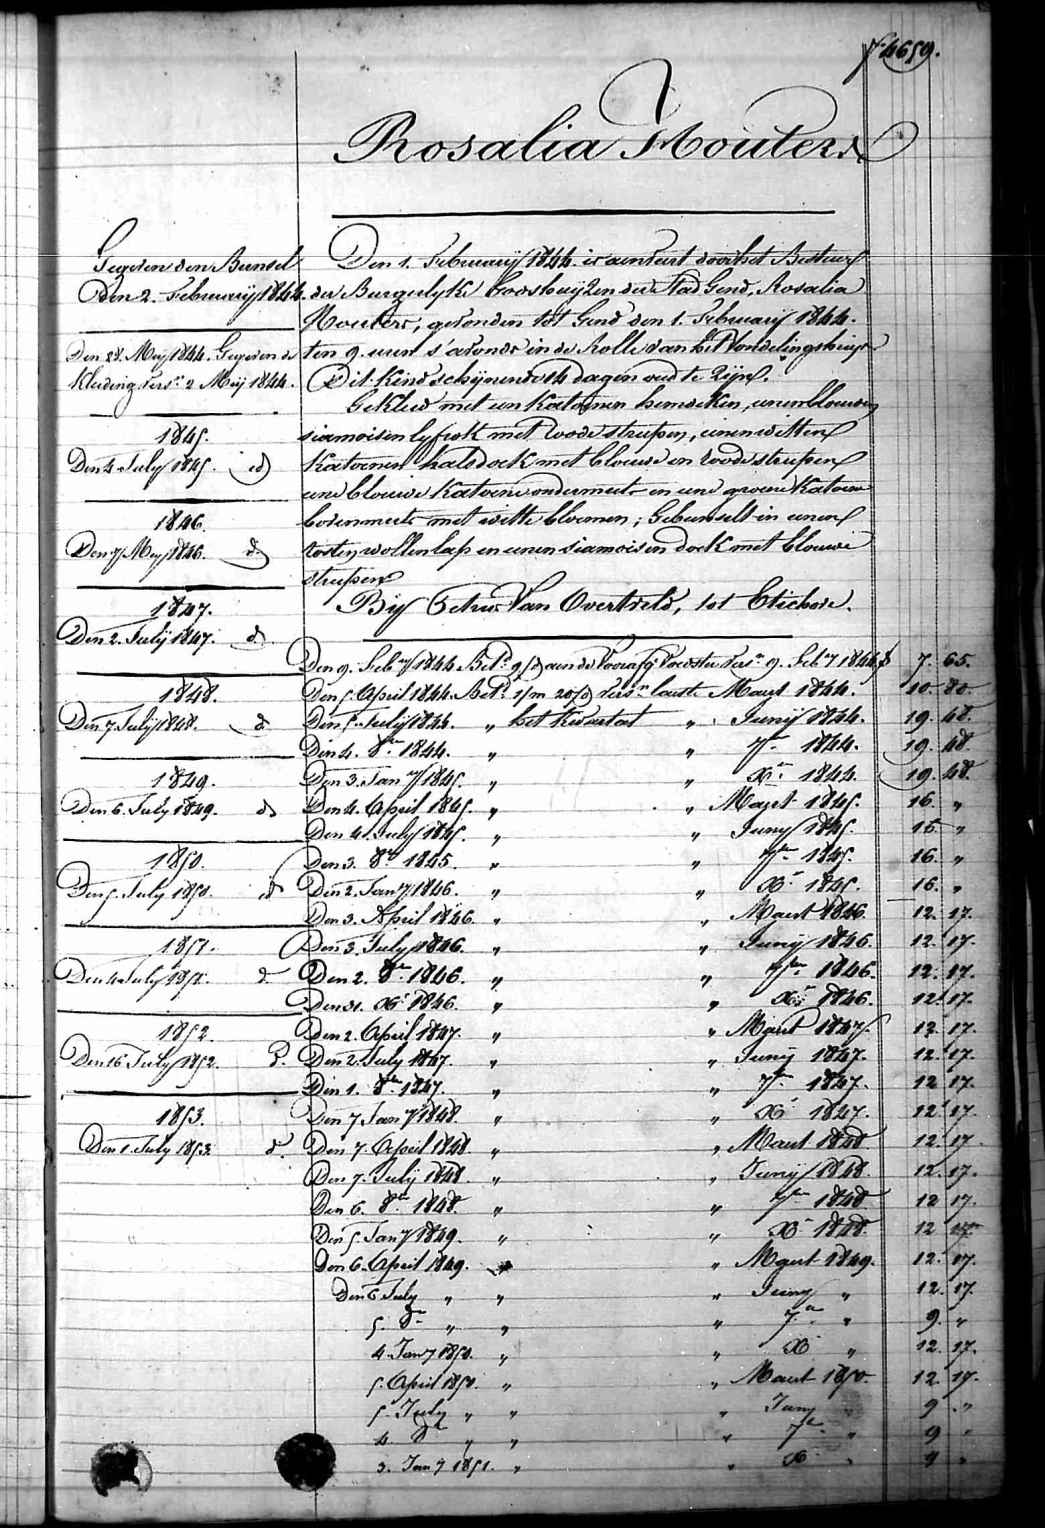 f. 4659.
Rosalia Houters
Gegeven den Bunsel
Den 2. February 1844.
Den 28. Meij 1844. Gegeven de
Kleeding vers.n 2 Meij 1844.
1845.
Den 4 July 1845. id
1846.
Den 7 Mey 1846. d.
1847.
Den 2. July 1847. d
1848.
Den 7 July 1848. d
1849.
Den 6. July 1849. d
1850.
Den 5. July 1850. id
1851.
Den 4 July 1851. d.
1852.
Den 16 July 1852. d.
1853.
Den 1. July 1853. d.
Den 1. February 1844. is aenveert door het Bestuer
der Burgerlyke Godshuyzen der stad Gend, Rosalia
Houters, gevonden tot Gend den 1. February 1844.
ten 9. uren s'avonds in de Rolle van het Vondelingshuys
Dit Kind schynende 14 dagen oud te zyn.
Gekleed met een Katoenen hemdeken, eenen blouwen
siamoisen lyfrok met roode streepen, eenen witten
Katoenen halsdoek met blouwe en roode streepen
eene blouwe Katoene ondermuts en eene groene Katoene
bovenmuts met witte bloemen; Gebunselt in eenen
wollen lap en eenen siamoisen doek met blouwe
streepen
By Petrus Van Overtveld, tot Etichove.
Den 9. Feb.y 1844 Bet.d aen de Voorafg. Voedster vers.n 9. Feb.y 1844. 7. 65.
Den 5. April 1844. Bet.d 1/m 20/d vers.n laatste Maert 1844. 10. 80.
Den 5. July 1844. " het Kwartael " Juny 1844. 19. 48.
Den 4. 8.er 1844. " " 7.er 1844. 19. 48.
Den 3. Jan.y 1845. " " X.r 1844. 19. 48.
Den 4. April 1845. " " Maert 1845. 16. "
Den 4. July 1845. " " Juny 1845. 16. "
Den 3. 8.er 1845. " " 7.er 1845. 16. "
Den 2. Jan.y 1846. " " X.r 1845. 16. "
Den 3. April 1846. " " Maert 1846. 12. 17.
Den 3. July 1846. " " Juny 1846. 12. 17.
Den 2. 8.er 1846. " " 7.er 1846. 12. 17.
Den 31. X.r 1846. " " X.r 1846. 12. 17.
Den 2. April 1847. " " Maert 1847. 12. 17.
Den 2. July 1847. " " Juny 1847. 12. 17.
Den 1. 8.er 1847. " " 7.er 1847. 12 17.
Den 7 Jan.y 1848. " " X.r 1847. 12 17.
Den 7. April 1848 " " Maert 1848 12. 17.
Den 7. July 1848. " " Juny 1848 12. 17.
Den 6. 8.er 1848. " " 7.er 1848 12 17.
Den 5. Jan.y 1849. " " X.r 1848. 12 17.
Den 6. April 1849. " " Maert 1849. 12. 17.
Den 6 July " " " Juny " 12. 17.
5. 8.er " " " 7.er " 9. "
4. Jan.y 1850. " " X.r " 12. 17.
5. April 1850. " " Maert 1850. 12. 17.
5. July " " " Juny " 9 "
4 8.er " " " 7.er " 9 "
3. Jan.y 1851. " " X.r " 9 "